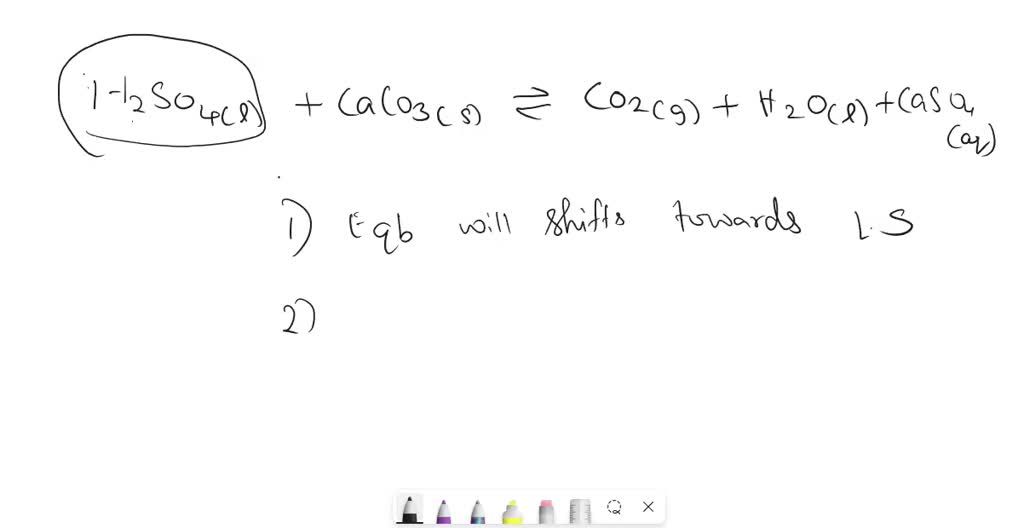 H2SO4(l) + CaCO3(s) ⇌ CO2(g) + H2O(l) + CaSO4 (aq)
1) Eqb will shifts towards L.S
2)